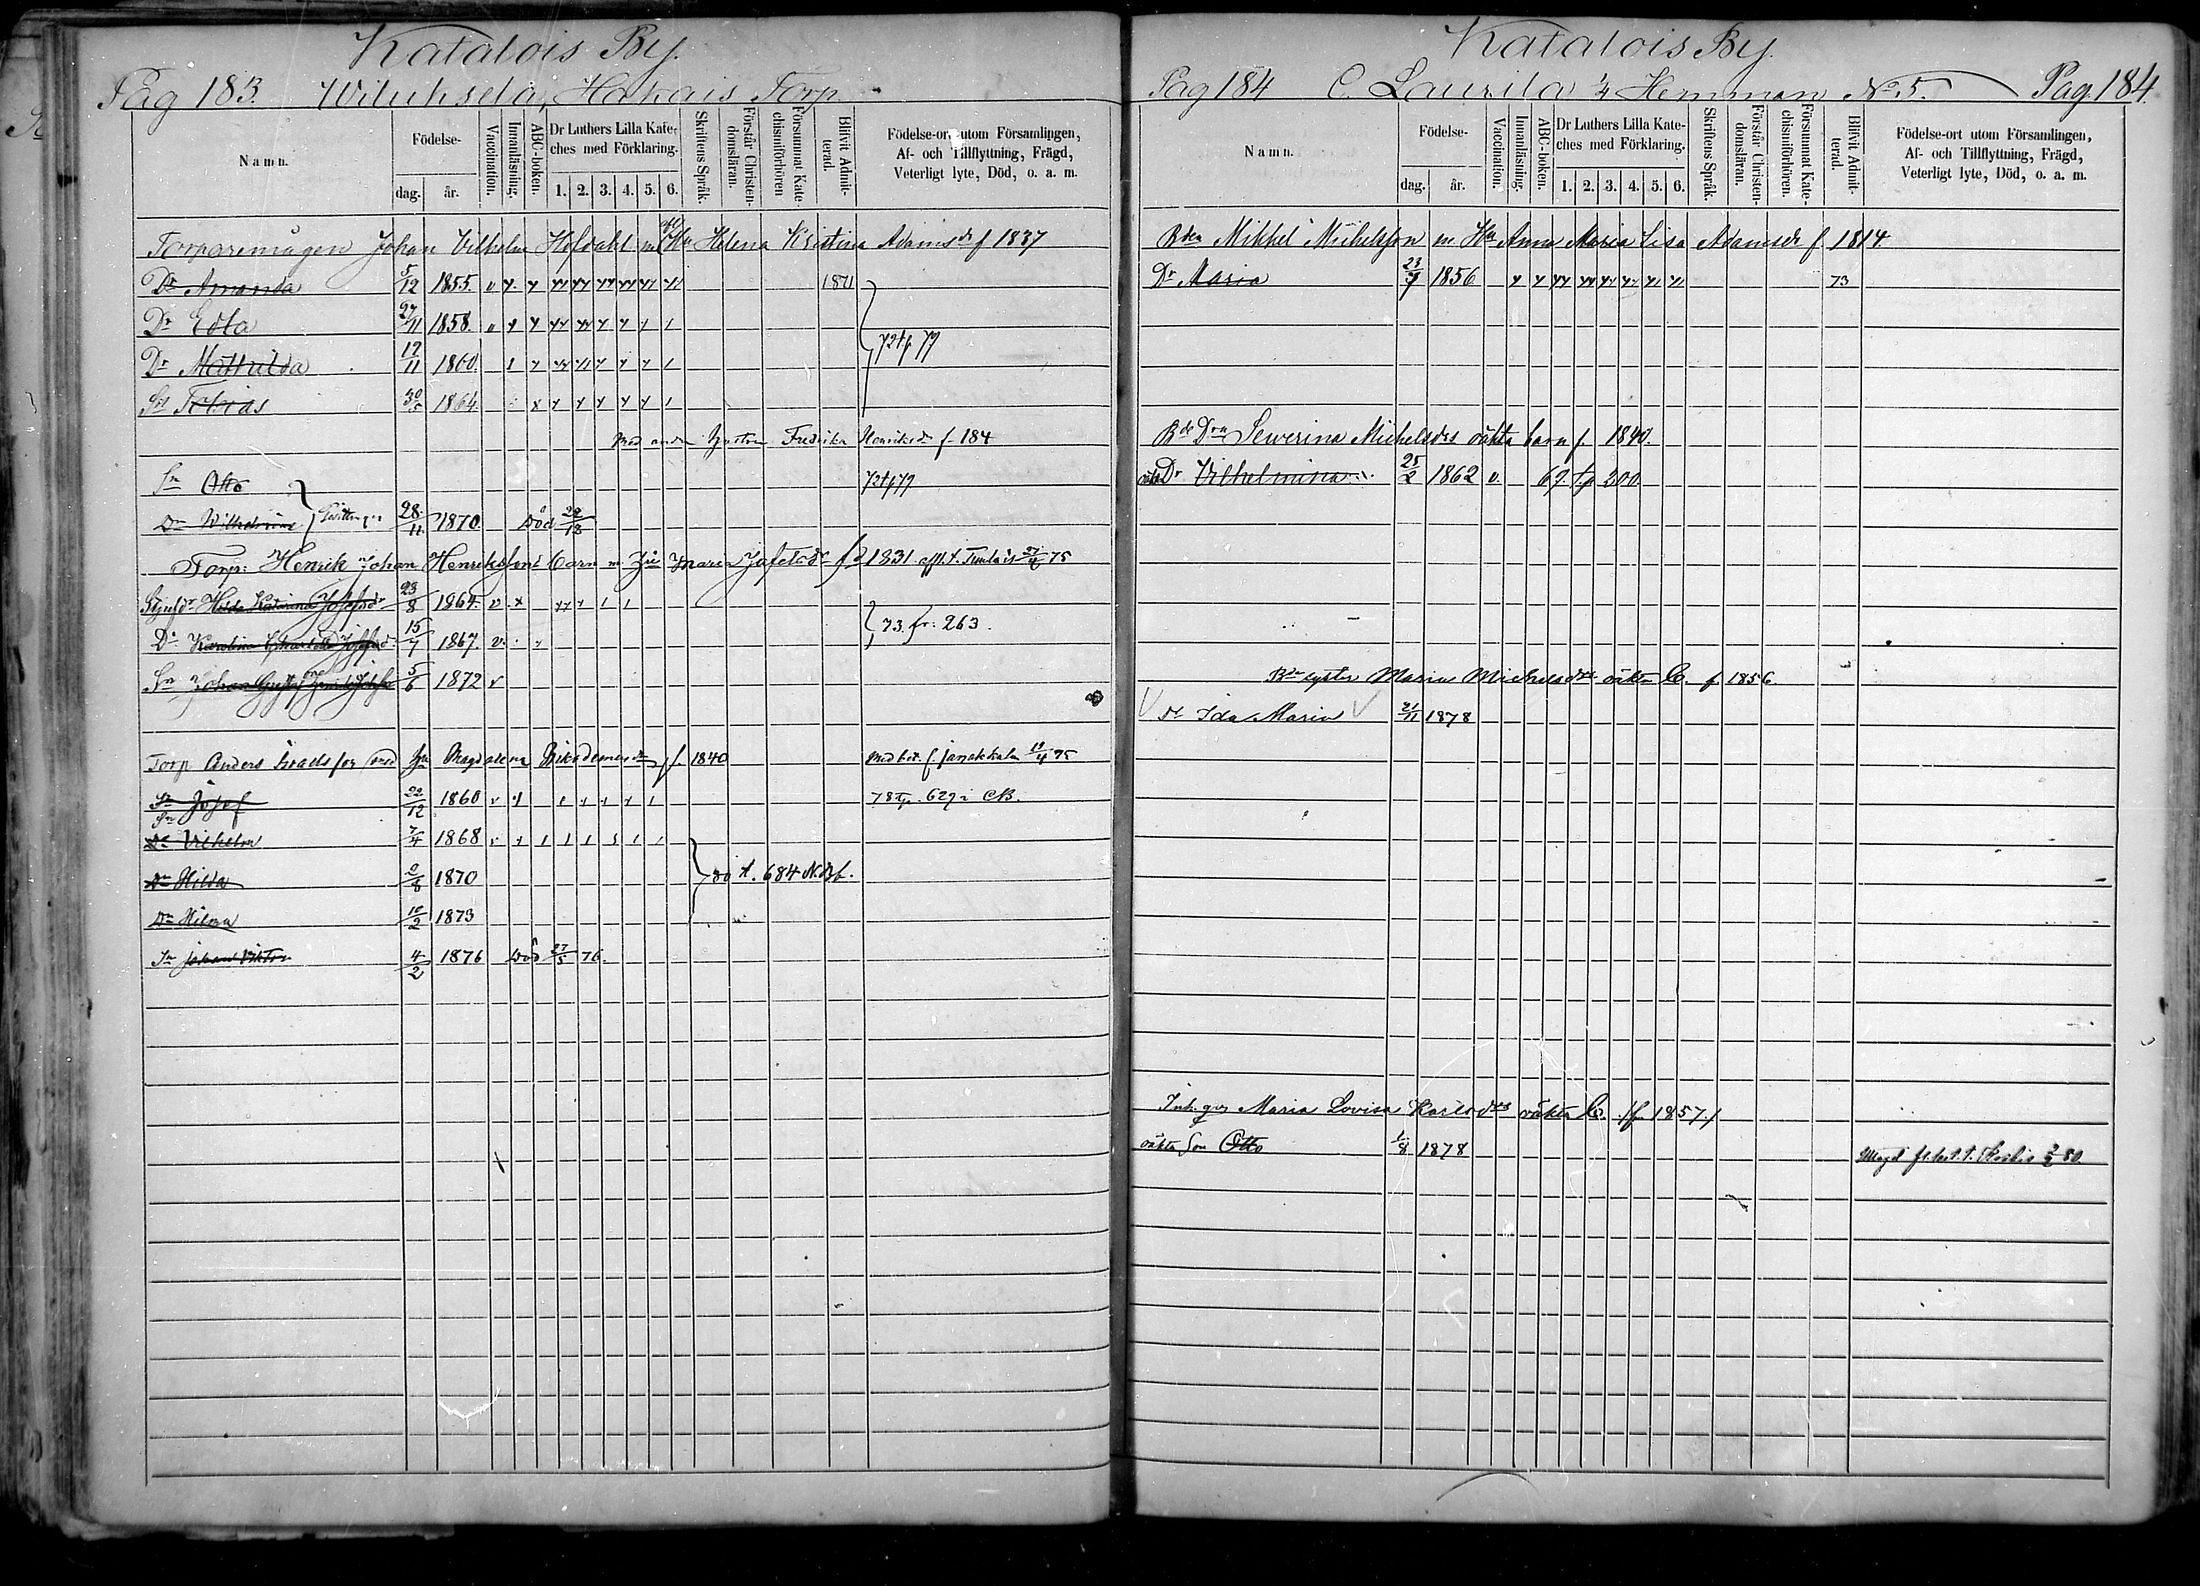 Katalois By.
Pag 183. Wiluksela, Hakais Torp
Namn. Födelse- dag. år. Vaccination. Innanläsning. ABC-boken. Dr Luthers Lilla Kateches med Förklaring. 1. 2. 3. 4. 5. 6. Skriftens Språk. Förstår Christendomsläran. Försummat Katechismiförhören Blifvit Admitterad. Födelse-ort utom Församlingen, Af- och Tillflyttning, Frägd, Veterligt lyte, Död, o. a. m.
Torparemågen Johan Vilhelm Hofdahl m Hu Helena Kristina Adamsdr f 1837
Dr Amanda 5/12 1855. 1871
Dr Edla 27/11 1858.
Dr Mathilda 17/11 1860. 72 tp 79
Sn Tobias 30 1864.
Med andra hustrun Fredrika Henriksdr f. 184
Sn Otto 72 tp 79
Dr Wilhelmina Tvillingar 28/11 1870. Död 29/12
Torp: Henrik Johan Henrikssons barn m Hu Maria Josefsdr fd 1831 affl. t. Tuulois 75
Styfdr Hilda Katarina Josefsdr 23/8 1864.
Dr Karolina Charlotta Josefsdr 15/7 1867. 73. fr: 263.
Sn Johan Gustaf Henriksson 5/6 1872
Torp Anders Israelsson med Hu Magdalena Nikodemusdr f. 1840 Med bet. f. Janakkala 19/4 75
Sn Josef 22/12 1860 78 tp. 629 i CB.
Sn Vilhelm 7/4 1868
Dr Hilda 9/8 1870 80 t. 684 N. Bf.
Dr Hilma 10/2 1873
Sn Johan Viktor 4/2 1876 Död 27/5 76.
Katalois By.
Pag 184 C. Laurila 1/4 Hemman No 5. Pag. 184.
Namn. Födelse- dag. år. Vaccination. Innanläsning. ABC-boken. Dr Luthers Lilla Kateches med Förklaring. 1. 2. 3. 4. 5. 6. Skriftens Språk. Förstår Christendomsläran. Försummat Katechismiförhören. Blifvit Admitterad. Födelse-ort utom Församlingen, Af- och Tillflyttning, Frägd, Veterligt lyte, Död, o. a. m.
Bdn Mikkel Michelsson m. Hu Anna Maria Lisa Adamsdr f 1814
Dr Maria 23/7 1856 73
Bde Drn Sewerina Michelsdrs oäkta barn f. 1840.
oäkta Dr Vilhelmina 25/2 1862 v. 69. tp 200.
Bdn syster Maria Michelsdrs oäkta b. f. 1856
Dr Ida Maria 21/11 1878
Inh. qvs Maria Lovisa Karlsdrs oäkta b. /f. 1857./
oäkta Son Otto 1/8 1878 80.